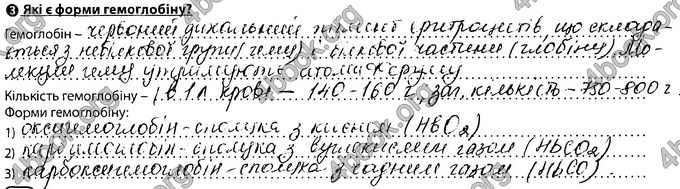 3 Які є форми гемоглобіну?
Гемоглобін – червоний дихальний пігмент еритроцитів, що склада-
ється з небілкової групи (гему) і білкової частини (глобіну). Мо-
лекули гему утримують атоми Феруму
Кількість гемоглобіну – в 1 л крові – 140-160 г, заг. кількість – 750-800 г.
Форми гемоглобіну:
1) оксигемоглобін - сполука з киснем (HbO2)
2) карбгемоглобін - сполука з вуглекислим газом (HbCO2)
3) карбоксигемоглобін - сполука з чадним газом (HbCO)
4book.org